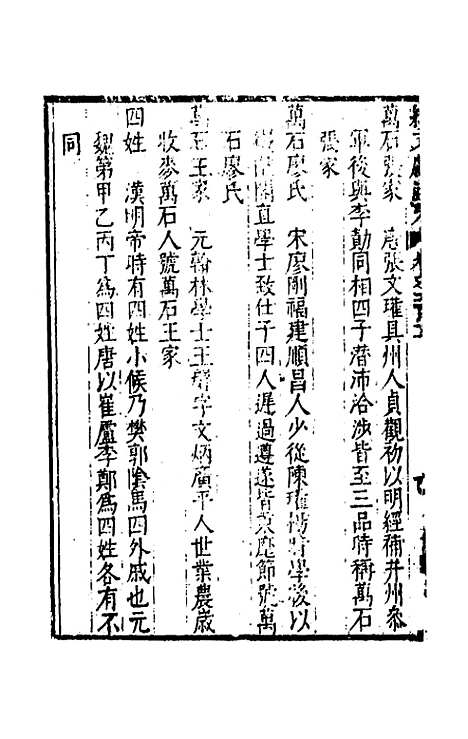 萬石張家　唐張文瓘貝州人貞觀初以明經補并州參
軍後與李勣同相四子潛沛洽涉皆至三品時稱萬石
張家
萬石廖氏　宋廖剛福建順昌人少從陳瓘楊時學後以
閣直學士致仕子四人遲過遵遂皆秉麾節號萬
石廖氏
萬石王家　元翰林學士王磐字文炳廣平人世業農歲
收麥萬石人號萬石王家
四姓　漢明帝時有四姓小候乃樊郭陰馬四外戚也元
魏第甲乙丙丁為四姓唐以崔盧李鄭為四姓各有不
同